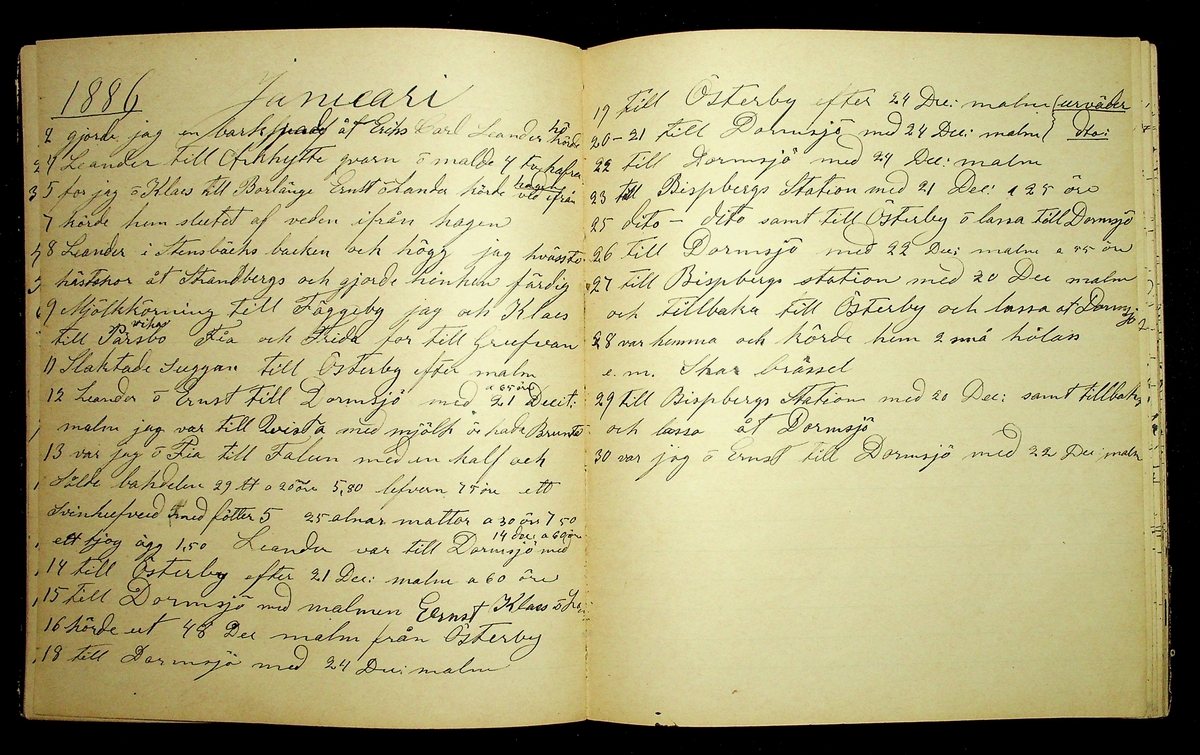 1886 Januari
2 gjorde jag en barkspade åt Eriks Carl Leander körde hö
4 Leander till Arkhytte qvarn ö malde 4 t hafra
5 for jag ö Klaes till Borlänge Ernst ö Landa körde ved ifrån hagen
7 körde hem slutet af veden ifrån hagen
8 Leander i Stensbäcks backen och högg jag hvässte
hästskor åt Strandbergs och gjorde hinken färdig
9 Mjölkkörning till Fäggeby jag och Klaes
till Pärsbo Fia och Frida for till Greefvan
11 Slaktade Suggan till Österby efter malm
12 Leander ö Ernst till Dormsjö med 21 Decit: a 65 öre
malm jag var till Qvista med mjölk ö hade Brunte
13 var jag ö Fia till Falun med en kalf och
sålde bakdelen 29 a 20 öre 5,80 lefvern 75 öre ett
svinhufveud med fötter 5 25 alnar mattor a 30 öre 7 50
ett tjog ägg 1,50 Leander var till Dormsjö med 14 dec a 60 öre
14 till Österby efter 21 Dec: malm a 60 öre
15 till Dormsjö med malmen Ernst Klaes ö
16 körde ut 48 Dec malm från Österby
18 till Dormsjö med 24 Dec: malm
19 till Österby efter 24 Dec: malm (urväder
20-21 till Dormsjö med 24 Dec: malm dto:
22 till Dormsjö med 24 Dec: malm
23 till Bispbergs Station med 21 Dec: a 25 öre
25 dito - dito samt till Österby ö lassa till Dormsjö
26 till Dormsjö med 22 Dec: malm a 55 öre
27 till Bispbergs station med 20 Dec malm
och tillbaka till Österby och lassa åt Dormsjö
28 var hemma och körde hem 2 små hölass
e. m. Skar brässel
29 till Bispbergs Station med 20 Dec: samt tillbaka
och lassa åt Dormsjö
30 var jag ö Ernst till Dormsjö med 22 Dec: malm